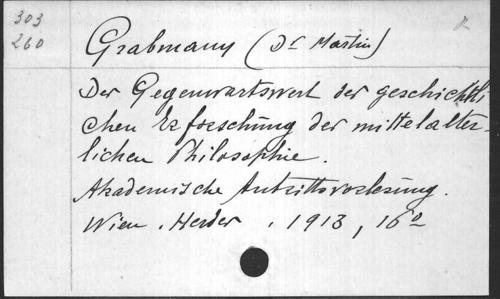 303
260
Grabmann (Dr Martin)
Der Gegenwartswert der geschichtli
chen Erforschung der mittelalter-
lichen Philosophie.
Akademische Antrittsvorlesung.
Wien, Herder, 1913, 16o